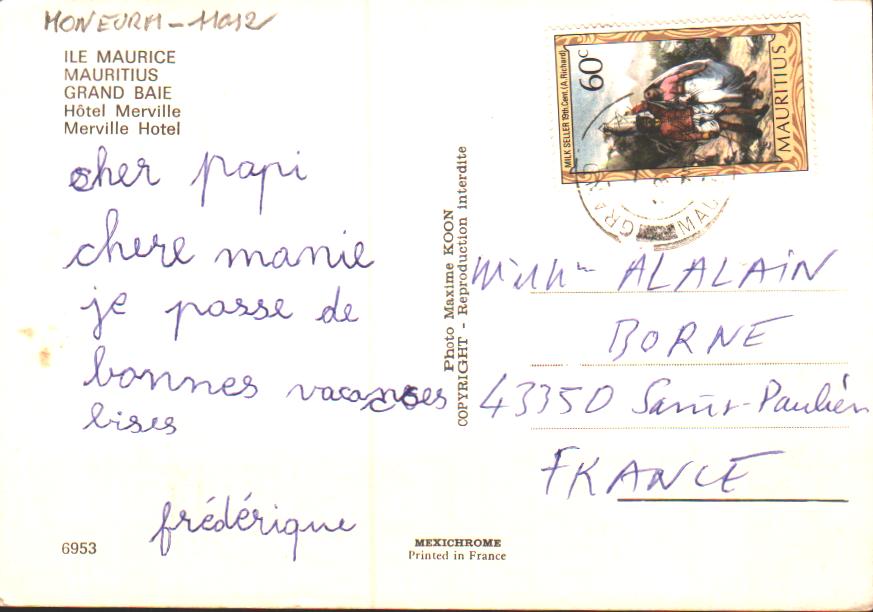 MONEURM - 11012
ILE MAURICE
MAURITIUS
GRAND BAIE
Hôtel Merville
Merville Hotel
cher papi
chere manie
je passe de
bonnes vacances
bises
frédérique
6953
MEXICHROME
Printed in France
Photo Maxime KOON
COPYRIGHT - Reproduction interdite
MILK SELLER 19th.Cent.(A.Richard)
60c
MAURITIUS
GRAND
MAU
ALALAIN
BORNE
43350 Saint-Paulien
FRANCE